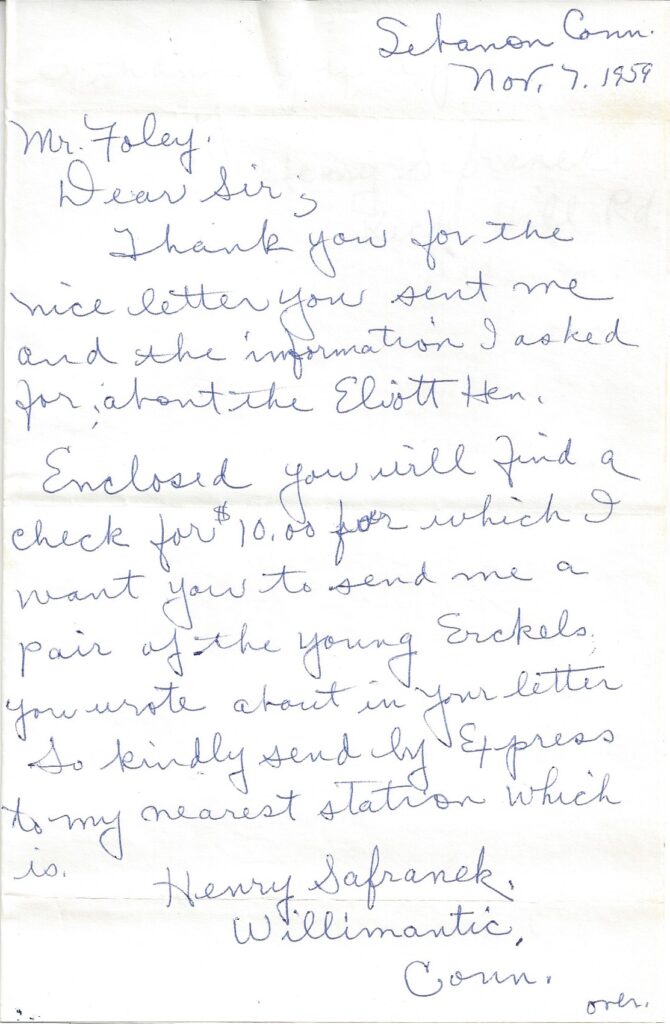 Lebanon Conn.
Nov. 7. 1959
Mr. Foley.
Dear Sir,
Thank you for the
nice letter you sent me
and the information I asked
for, about the Eliott Hen.
Enclosed you will find a
check for $10.00 for which I
want you to send me a
pair of the young Erckels
you wrote about in your letter
So kindly send by Express
to my nearest station which
is.
Henry Safranek.
Willimantic,
Conn.
over.